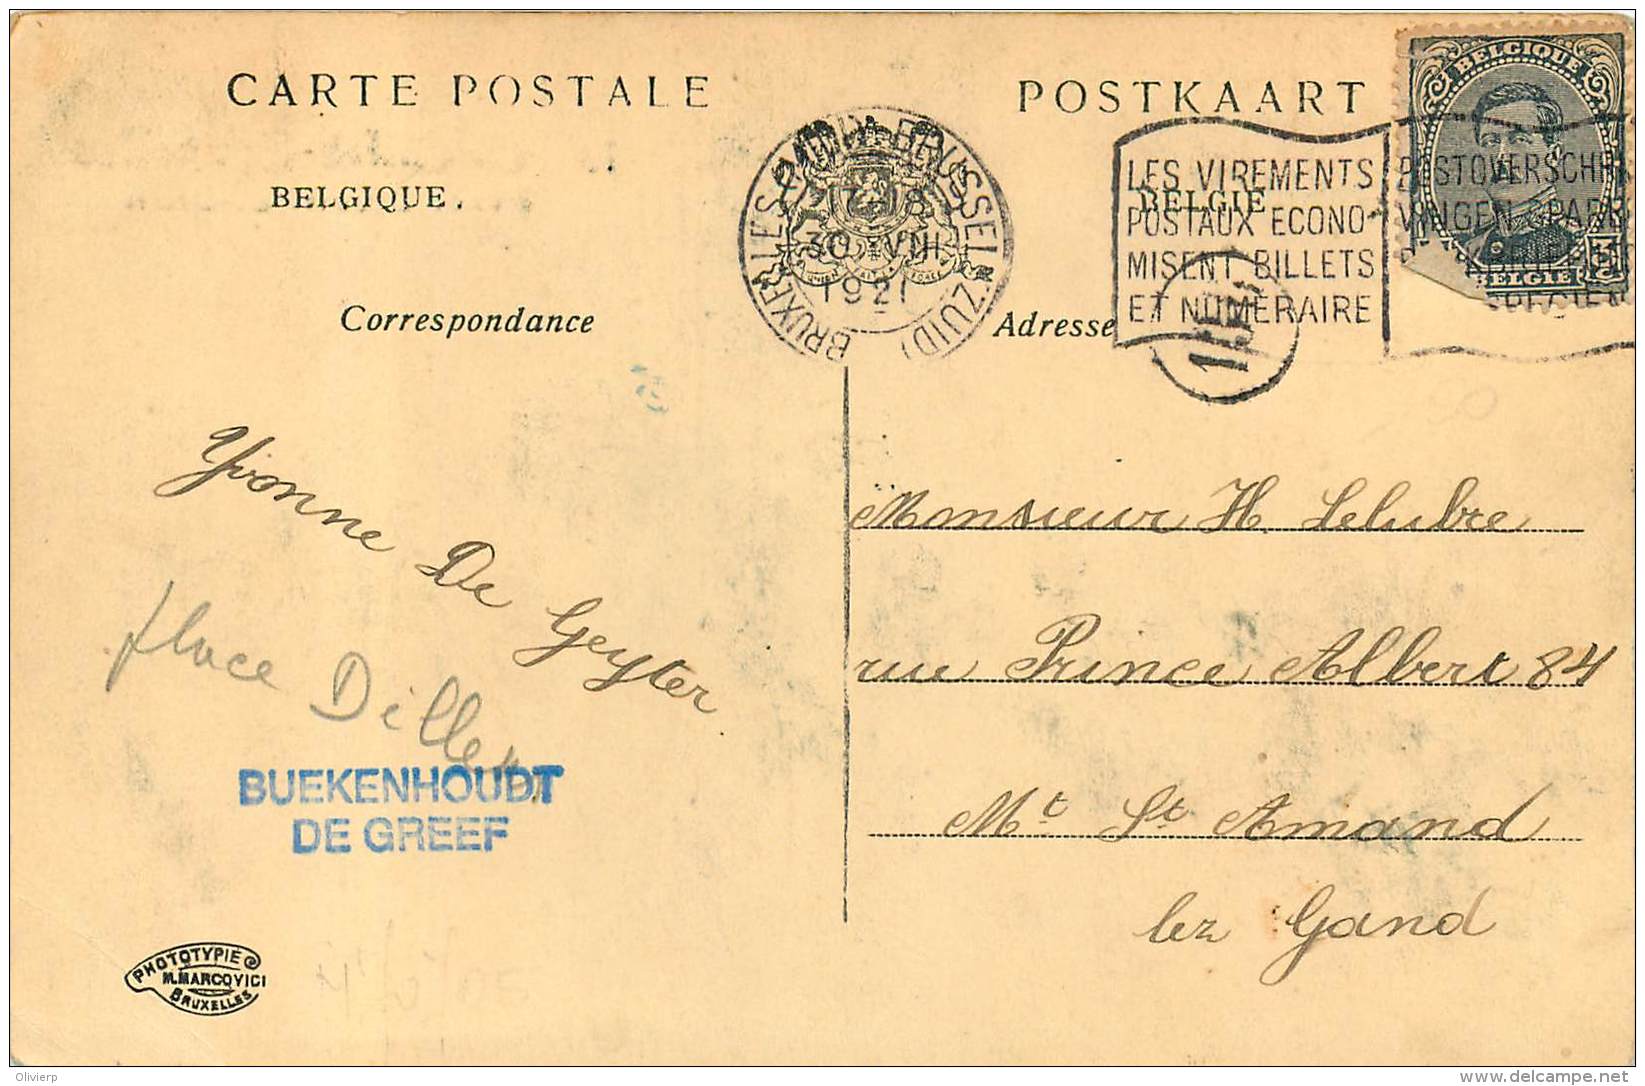 CARTE POSTALE
POSTKAART
BELGIQUE
BELGIQUE.
BELGIE
BRUXELLES (MIDI) BRUSSEL (ZUID)
17-18
30 VIII
1921
LES VIREMENTS
POSTAUX ECONO-
MISENT BILLETS
ET NUMERAIRE
POSTOVERSCHRI
VINGEN SPAR
SPECIEN
BELGIE
Correspondance
Adresse
Yvonne De Geyter
place Dillen
BUEKENHOUDT
DE GREEF
Monsieur H. Lelubre
rue Prince Albert 84
Mt St Amand
lez Gand
PHOTOTYPIE
M.MARCOVICI
BRUXELLES
Olivierp
www.delcampe.net